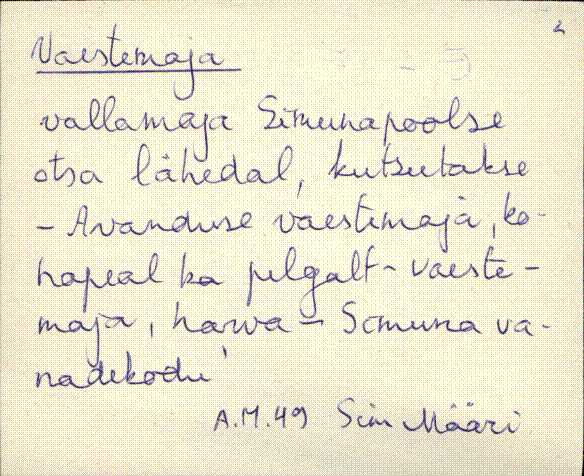 2
Vaestemaja
vallamaja Simunapoolse
otsa lähedal, kutsutakse
– Avanduse vaestemaja, ko-
hapeal ka pelgalt – vaeste-
maja, harva – Simuna va-
nadekodu
A.M.49 Sim Määri